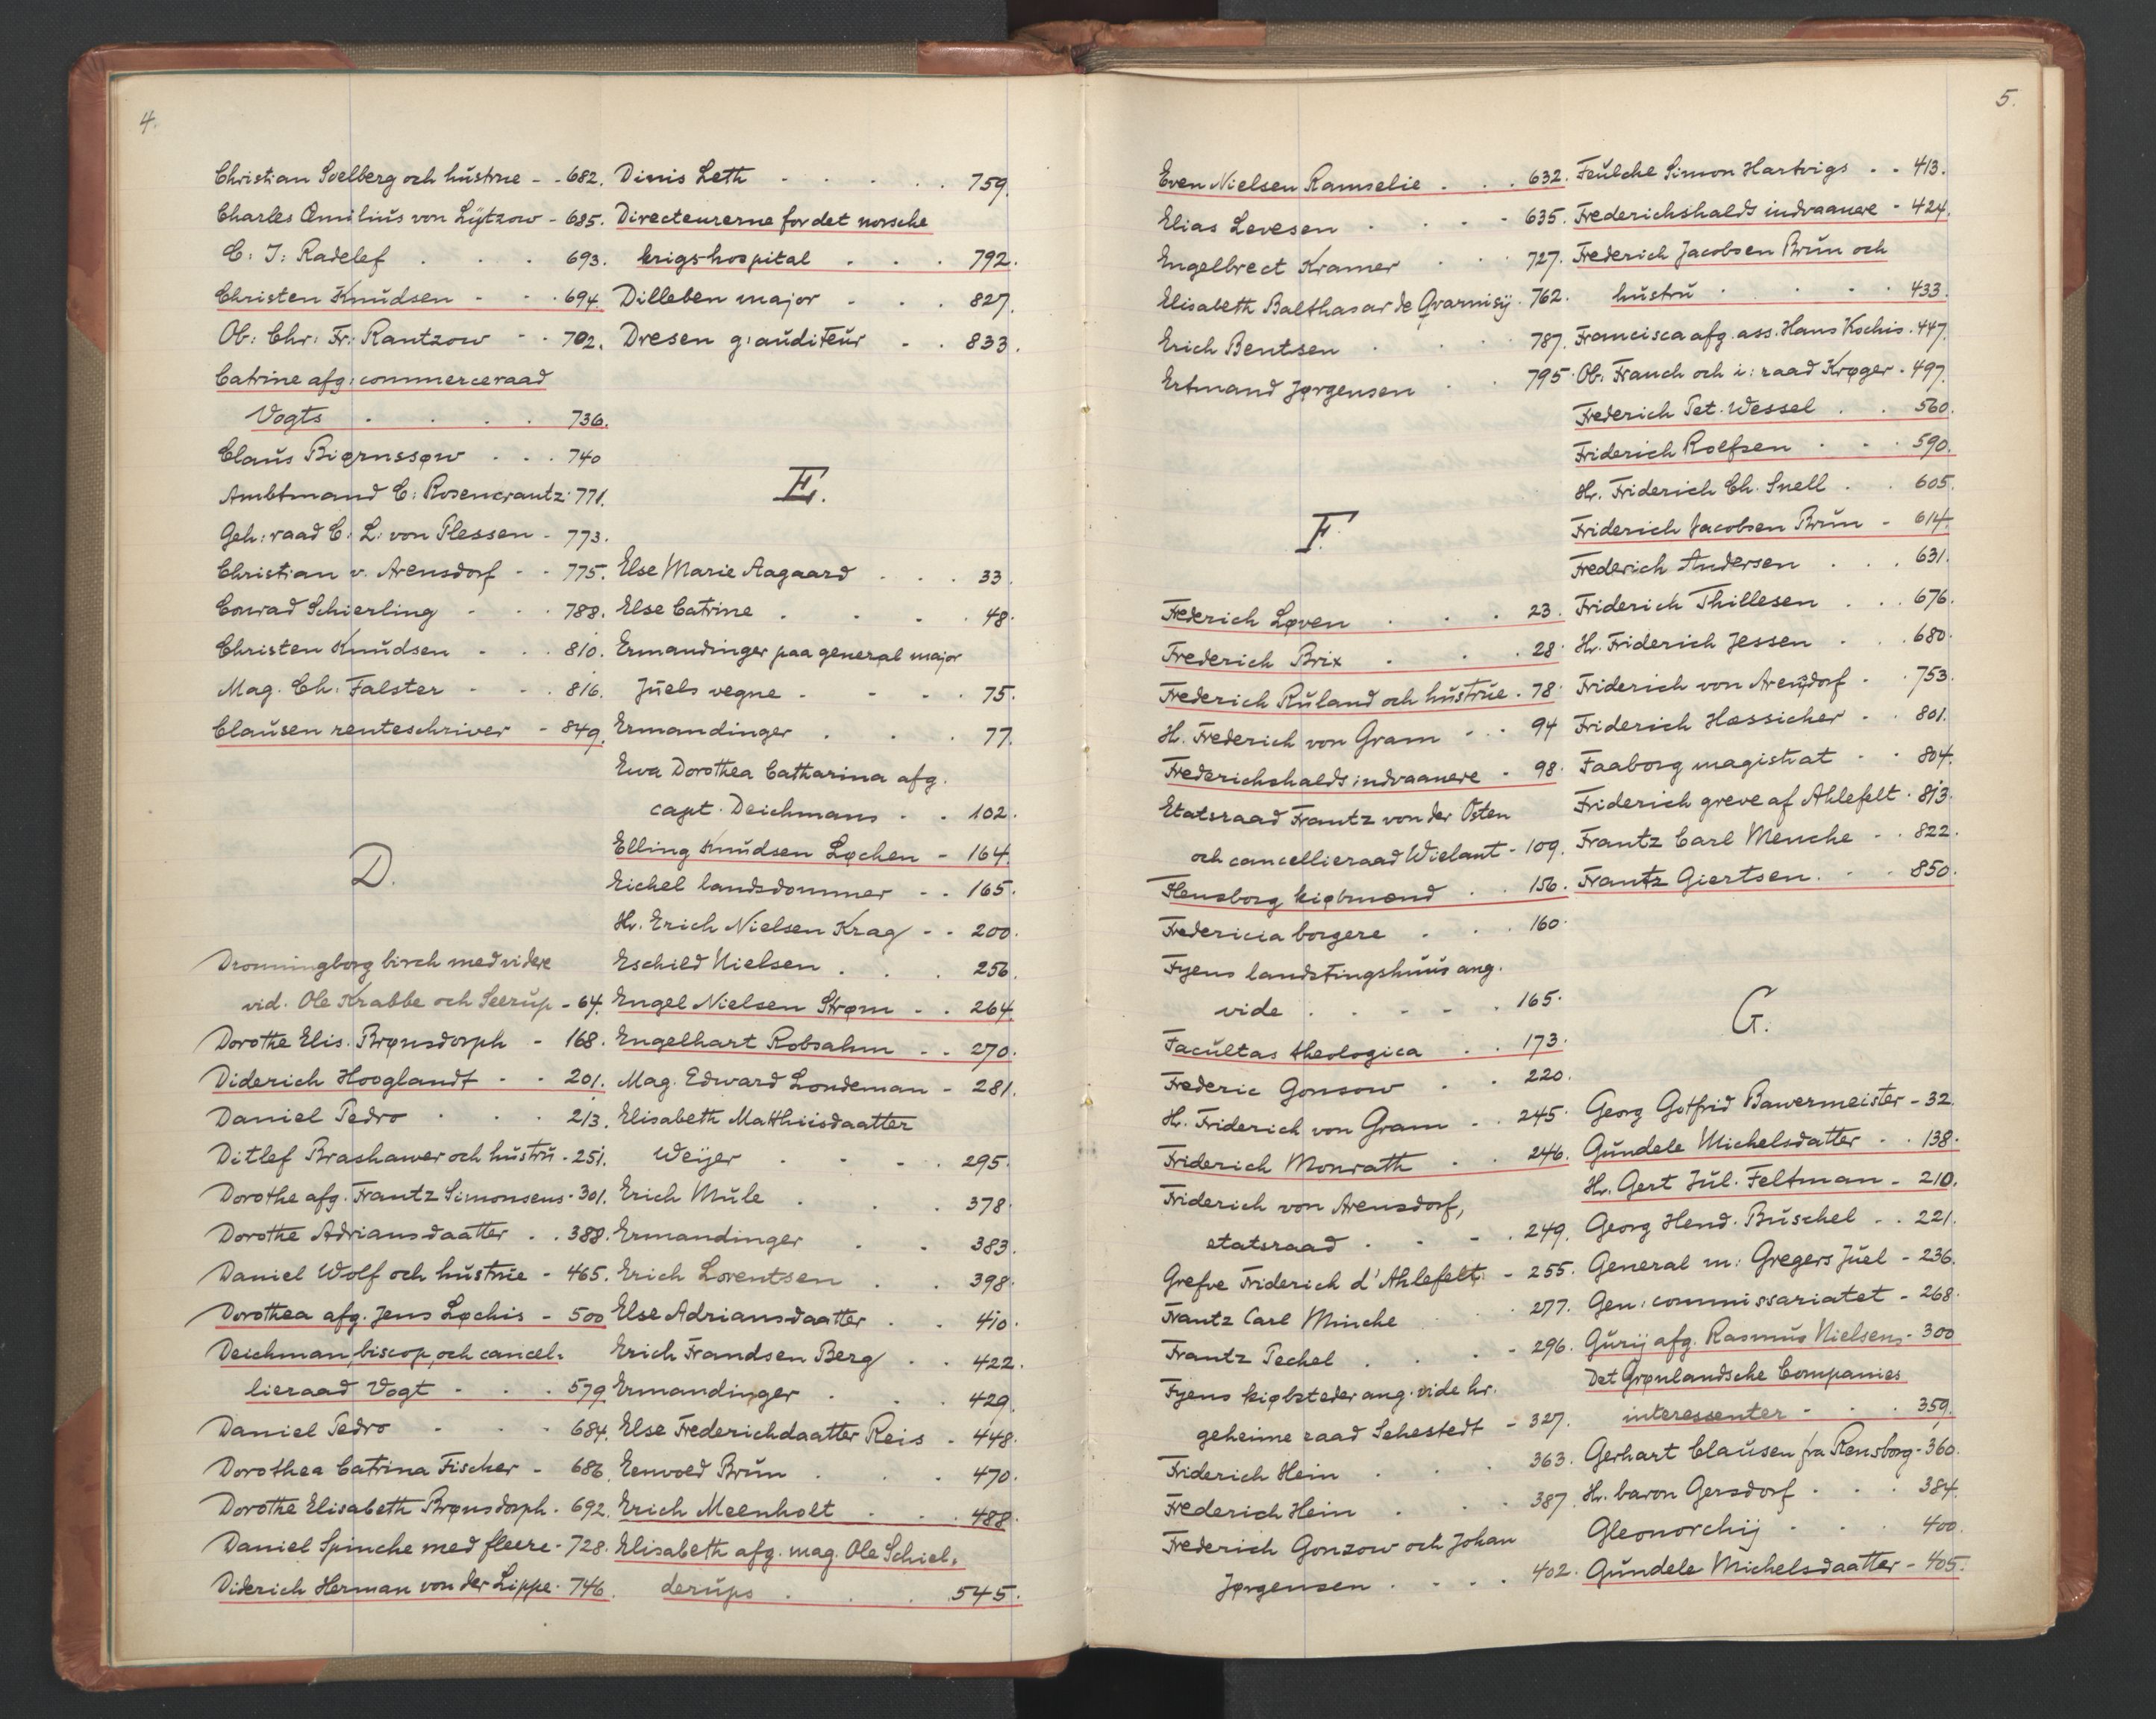 4.
Christian Svelberg och hustrue - - 682.
Charles Æmilius von Lÿtzow - 685.
C: J: Radelef . . . 693.
Christen Knudsen - - . 694.
Ob: Chr: Fr: Rantzow - - 702.
Catrine afg: commerceraad
Vogts . . . . 736.
Claus Biørnssøn . . . 740
Ambtmand C: Rosencrantz . 771.
Geh: raad C: L: von Plessen - 773.
Christian v. Arensdorf - - 775.
Conrad Schierling - . . 788.
Christen Knudsen - . . 810.
Mag. Ch. Falster - - . 816.
Clausen renteschriver - 849.
D.
Dronningborg birch med videre
vid. Ole Krabbe och Seerup - 64.
Dorothe Elis. Brønsdorph - 168.
Diderich Hooglandt - - 201.
Daniel Pedro . . . 213.
Ditlef Brashawer och hustru - 251.
Dorothe afg. Frantz Simonsens - 301.
Dorothe Adriansdaatter . . 388.
Daniel Wolf och hustrue - 465.
Dorothea afg. Jens Løchis - 500
Deichman, biscop, och cancel-
lieraad Vogt - . . 579
Daniel Pedro - . . 684.
Dorothea Catrina Fischer - 686.
Dorothe Elisabeth Brønsdorph . 692.
Daniel Spinche med fleere - 728.
Diderich Herman von der Lippe . 746.
Dinis Leth - . . . . 759.
Directeurerne for det norsche
krigshospital . . . 792.
Dilleben major . . . 827.
Dresen g: auditeur . . 833.
E.
Else Marie Aagaard . . . 33.
Else Catrine . . . . 48.
Ermandinger paa general major
Juels vegne - - - . 75.
Ermandinger . . . 77.
Eva Dorothea Catharina afg.
capt. Deichmans . . 102.
Elling Knudsen Løchen - 164.
Eichel landsdommer - - 165.
Hr. Erich Nielsen Krag - - 200.
Eschild Nielsen . . . 256.
Engel Nielsen Strøm - . 264.
Engelhart Robsahm - - 270.
Mag. Edward Londeman - 281.
Elisabeth Matthiisdaatter
Weÿer . - - . 295.
Erich Mule . . . 378.
Ermandinger . . 383.
Erich Lorentsen . . 398.
Else Adriansdaatter . . 410.
Erich Frandsen Berg . . 422.
Ermandinger . . . 429.
Else Frederichdaatter Reis - 448.
Eenvold Brun . . . 470.
Erich Meenholt . . . 488.
Elisabeth afg. mag. Ole Schiel-
derups . . . 545.
5.
Even Nielsen Ramselie . . . 632.
Elias Levesen . . . - 635.
Engelbrect Kramer . . . 727.
Elisabeth Balthasar de Qvarnisÿ . 762.
Erich Bentsen . . . 787.
Ertmand Jørgensen . . 795.
F.
Federich Løven . . . 23.
Frederich Brix . . . 28.
Frederich Ruland och hustrue . 78.
H. Frederich von Gram - . . 94
Frederichshalds indvaanere - 98.
Etatsraad Frantz von der Osten
och cancellieraad Wielant - 109.
Flensborg kiøbmænd . . 156.
Fredericia borgere . . . 160.
Fyens landstingshuus ang.
vide . . - - . 165.
Facultas theologica . . 173.
Frederic Gonsow . . 220.
H. Friderich von Gram - . 245.
Friderich Monrath . . 246.
Friderich von Arensdorf,
etatsraad . . - . 249.
Grefve Friderich d'Ahlefelt - 255.
Frantz Carl Minche . . 277.
Frantz Pechel . . . - 296.
Fyens kiøbsteder ang. vide hr.
geheime raad Sehestedt - 327.
Friderich Hein . . . 363.
Frederich Hein . . . 387.
Frederich Gonzow och Johan
Jørgensen . . . . 402.
Feulche Simon Hartvigs . . 413.
Frederichshalds indvaanere - 424.
Frederich Jacobsen Brun och
hustru . . . . 433.
Francisca afg. ass. Hans Kochis . 447.
Ob: Franch och i: raad Krøger . 497.
Frederich Pet. Wessel . . 560.
Friderich Roefsen . . . 590.
Hr. Friderich Ch. Snell . . 605.
Friderich Jacobsen Brun - 614.
Frederich Andersen . . . 631.
Friderich Thillesen . . . 676.
H. Friderich Jessen . . . 680.
Friderich von Arensdorf - . 753.
Friderich Hassicher - . 801.
Faaborg magistrat . . 804.
Friderich greve af Ahlefelt . 813.
Frantz Carl Menche - . 822.
Frantz Giertsen . . . 850.
G.
Georg Gotfrid Bawermeister - 32.
Gundele Michelsdatter - . 138.
Hr. Gert Jul. Feltman - 210.
Georg Hend. Buschel . . 221.
General m: Gregers Juel - 236.
Gen: commissariatet - 268.
Gurij afg. Rasmus Nielsens - 300
Det Grønlandsche Companies
interessenter - . . 359.
Gerhart Clausen fra Rensborg - 360.
Hr. baron Gersdorf . . . 384.
Gleonorchij . . . 400.
Gundele Michelsdaatter - 405.